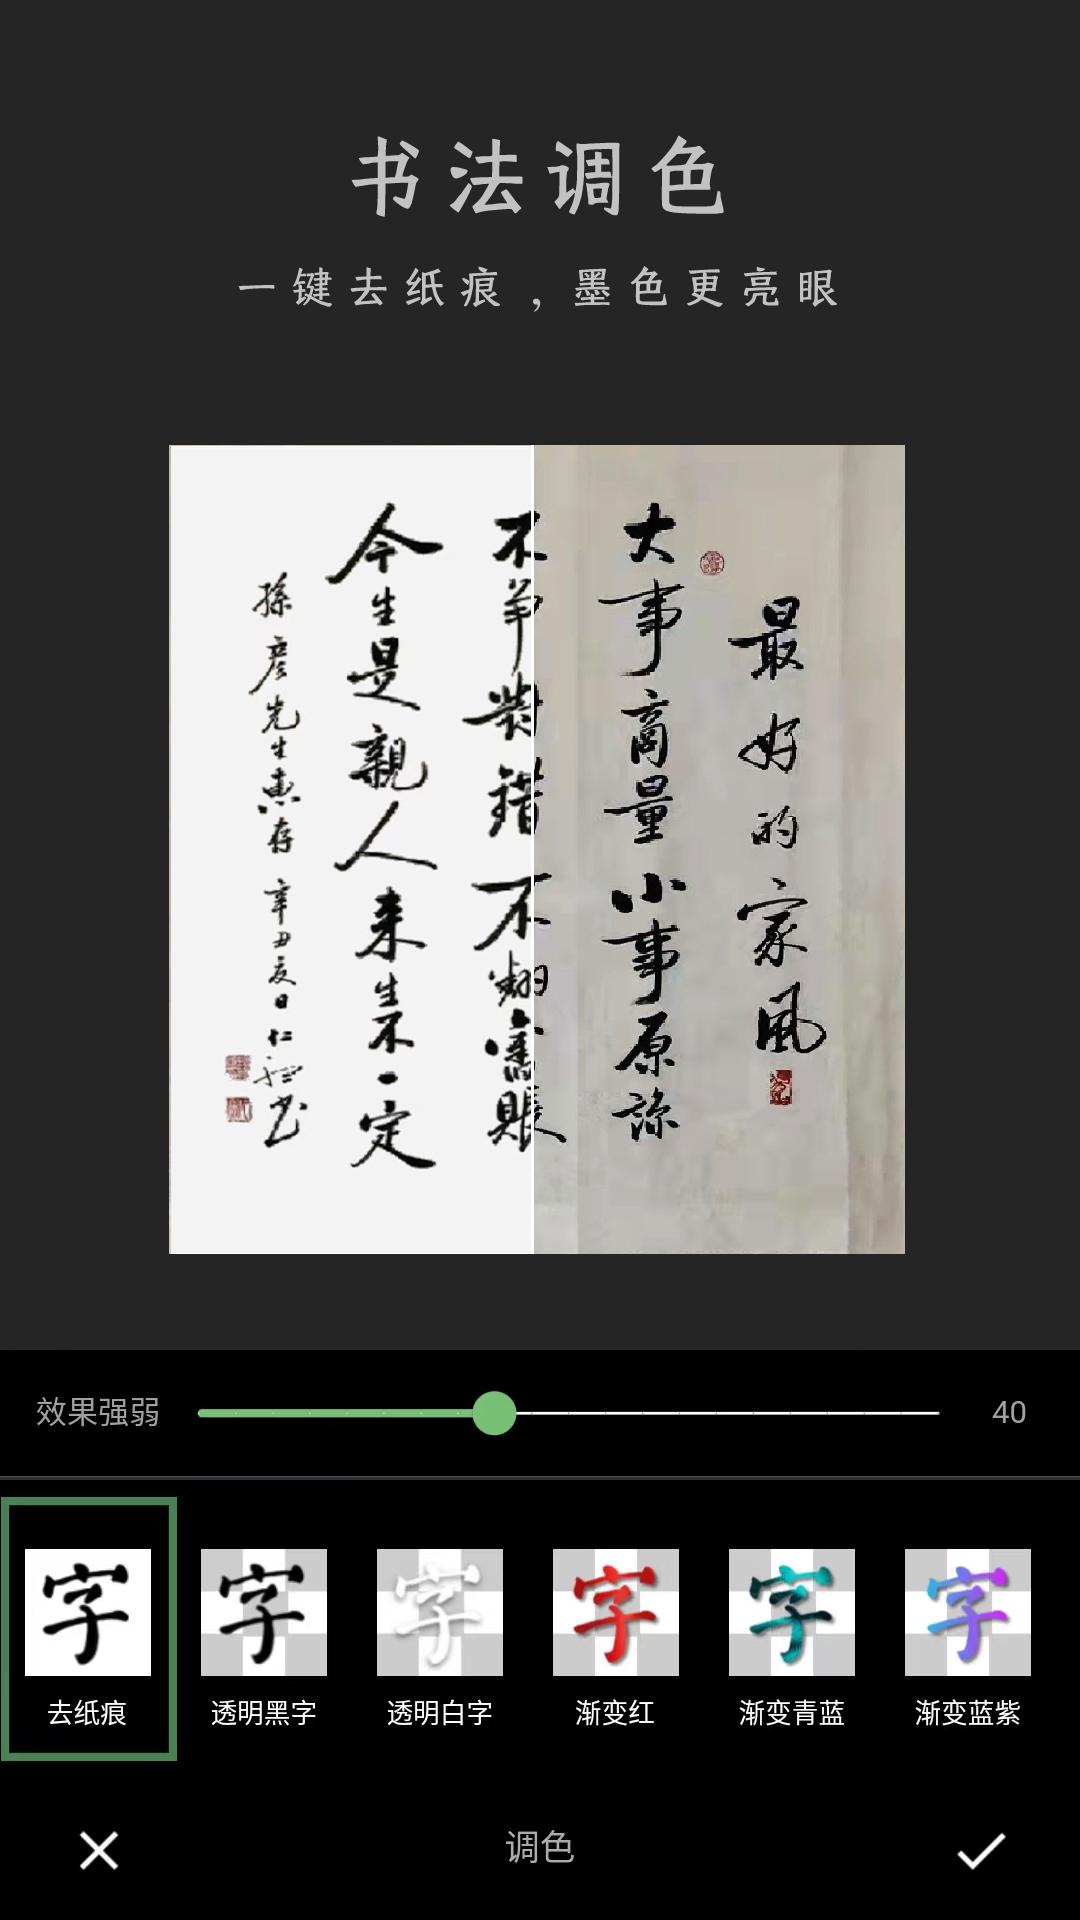 书法调色
一键去纸痕，墨色更亮眼
最好的家風
大事商量小事原諒
不争對錯不翻舊賬
今生是親人来生不一定
孫彦先生惠存 辛丑夏日 仁
效果强弱 40
字 字 字 字 字 字
去纸痕 透明黑字 透明白字 渐变红 渐变青蓝 渐变蓝紫
调色